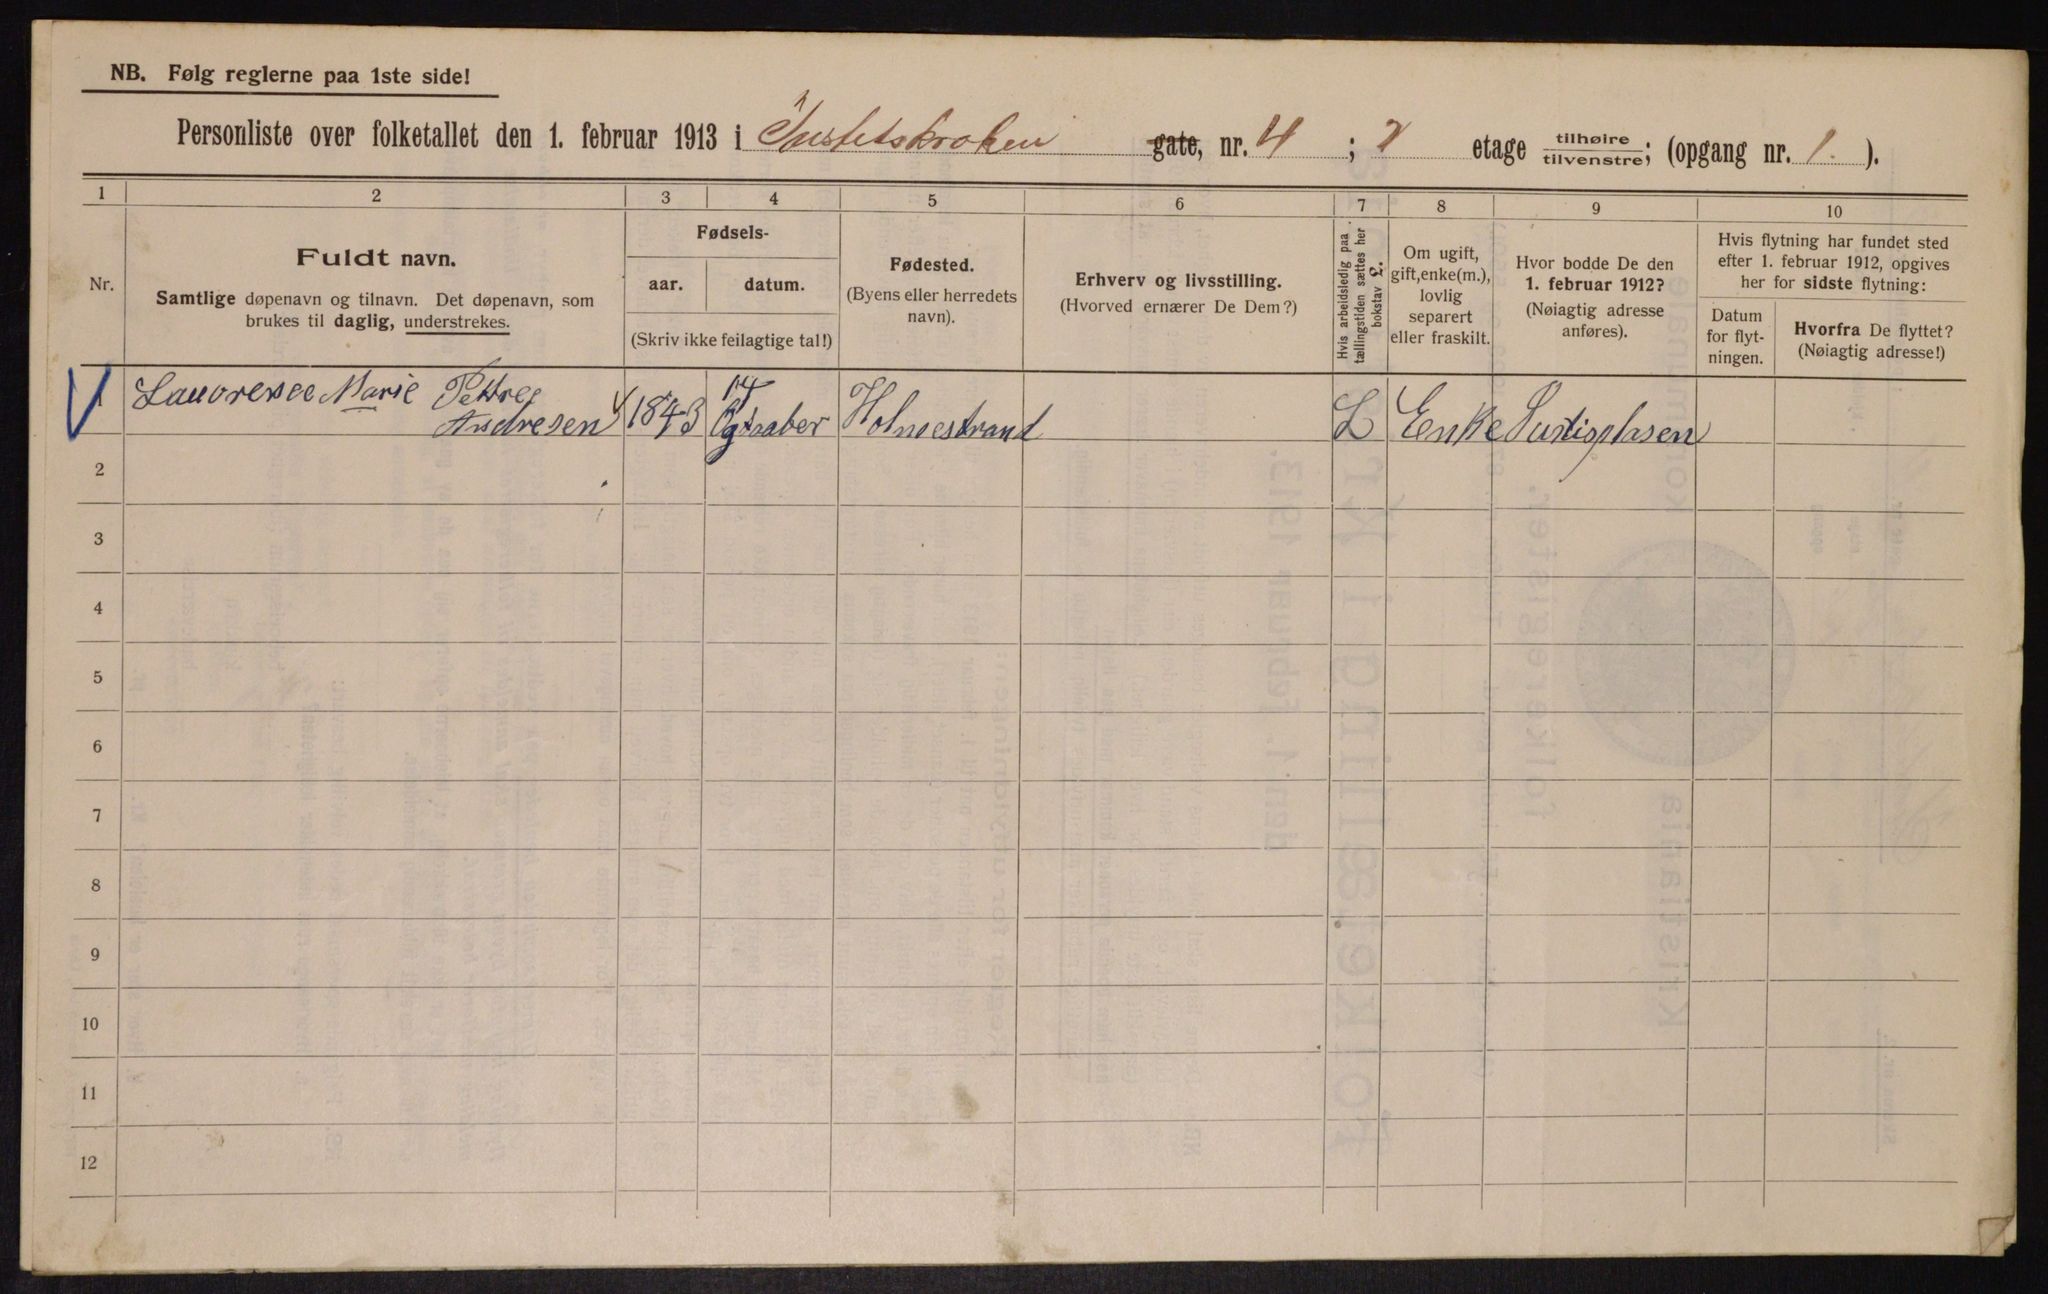 NB. Følg reglerne paa 1ste side!
Personliste over folketallet den 1. februar 1913 i Justitskroken gate, nr. 4 ; 2 etage tilhøire tilvenstre; (opgang nr. 1. ).
1 2 3 4 5 6 7 8 9 10
Nr.
Fuldt navn.
Samtlige døpenavn og tilnavn. Det døpenavn, som
brukes til daglig, understrekes.
Fødsels-
aar. datum.
(Skriv ikke feilagtige tal!)
Fødested.
(Byens eller herredets
navn).
Erhverv og livsstilling.
(Hvorved ernærer De Dem?)
Hvis arbeidsledig paa
tællingstiden sættes her
bokstav L.
Om ugift,
gift, enke(m.),
lovlig
separert
eller fraskilt.
Hvor bodde De den
1. februar 1912?
(Nøiagtig adresse
anføres).
Hvis flytning har fundet sted
efter 1. februar 1912, opgives
her for sidste flytning:
Datum
for flyt-
ningen.
Hvorfra De flyttet?
(Nøiagtig adresse!)
1 Marie
Andresen 1843 17 Holmestrand L Enke
2
3
4
5
6
7
8
9
10
11
12